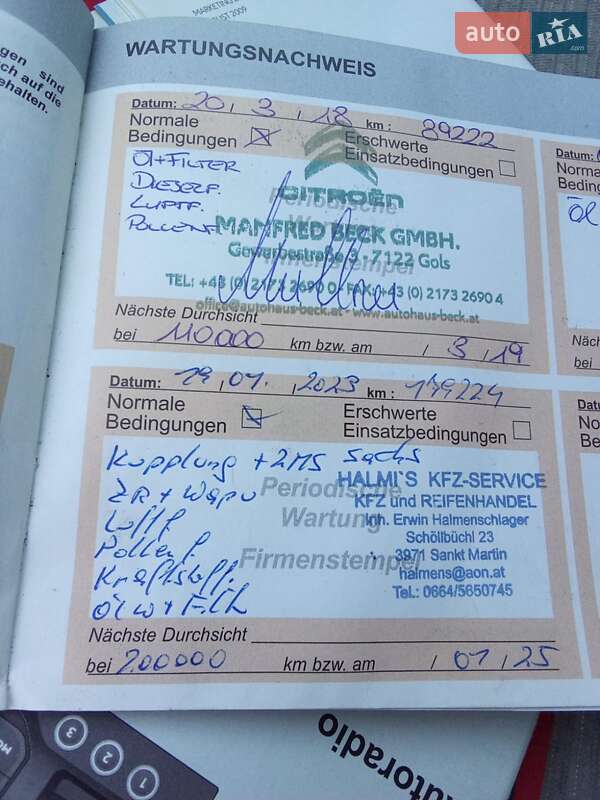 MARKETING
UST 2009
auto RIA .com
gen sind
ich auf die
ehalten.
WARTUNGSNACHWEIS
Datum: 20. 3. 18 km: 89222
Normale Bedingungen
Erschwerte Einsatzbedingungen
Öl+FILTER
DIESELF.
LUFTF.
POLLENF.
CITROËN
Periodische
MANFRED BECK GMBH.
Gewerbestraße 3 - 7122 Gols
Firmenstempel
TEL: +43 (0) 2173 2690 0 - FAX: +43 (0) 2173 2690 4
office@autohaus-beck.at - www.autohaus-beck.at
Nächste Durchsicht
bei 110000 km bzw. am / 3 / 19
Datum: 19.01.2023 km: 179224
Normale Bedingungen
Erschwerte Einsatzbedingungen
Kupplung + ZMS Sachs
ZR + Wapu
Luftf
Pollenf
Kraftstoff.
Periodische
Wartung
Firmenstempel
HALMI'S KFZ-SERVICE
KFZ und REIFENHANDEL
Inh. Erwin Halmenschlager
Schöllbüchl 23
3971 Sankt Martin
halmens@aon.at
Tel.: 0664/5650745
Nächste Durchsicht
bei 200000 km bzw. am / 01 / 25
Datum:
Norma
Bedin
Öl
Nächs
bei
Datu
No
Be
Nä
be
utoradio
3
2
1